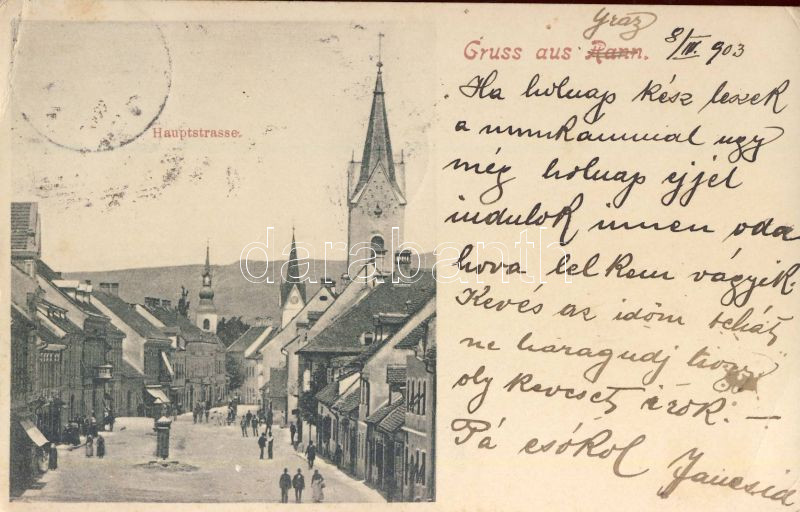 Gráz
Gruss aus Rann. 8/IV. 903
Hauptstrasse.
Ha holnap kész leszek
a munkammal ugy
még holnap éjjel
indulok innen oda
hova lelkem vágyik.
Kevés az időm tehát
ne haragudj hogy
oly keveset írok. —
Pá csókol Jancsid
darabanth